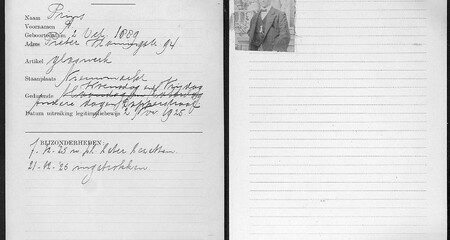 Naam Prijs
Voornamen
Geboortedatum 2 Oct 1889
Adres Pieter 94
Artikel glaswerk
Staanplaats Nieuwmarkt
Gedurende Woensdag en Vrijdag
andere dagen
Datum uitreiking legitimatiebewijs 2 Nov 1925
BIJZONDERHEDEN
7-12-25
21-12-'26 ingetrokken